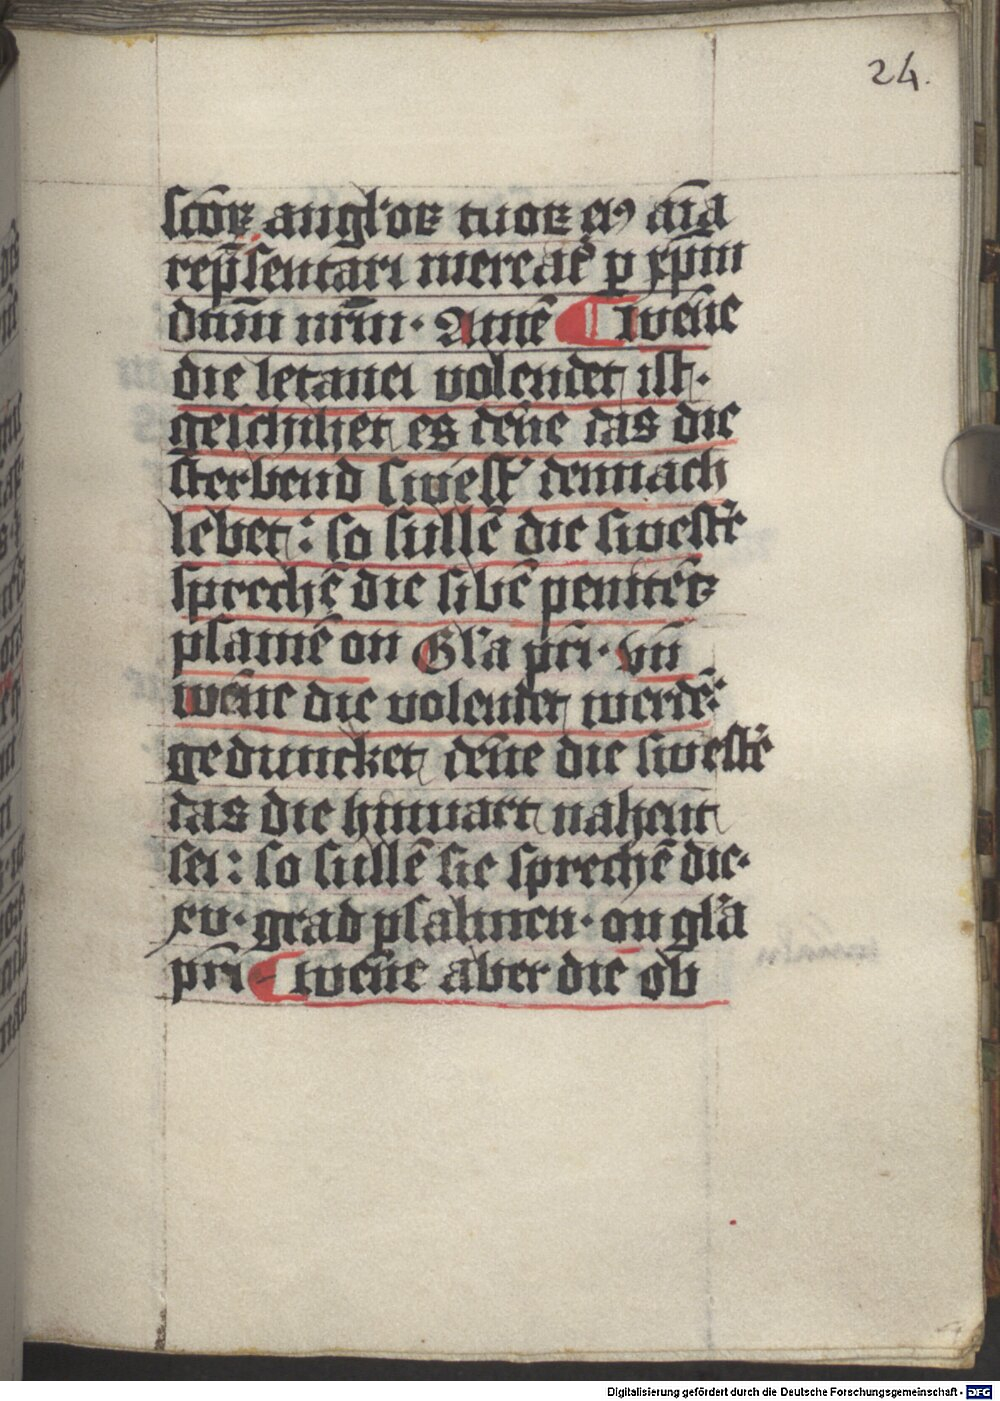 24.
sctōꝝ angl'oꝝ tuoꝝ eiꝯ aīa
rep̄sentari mereat᷑ ꝑ xp̄m
dn̄m nr̄m · Amē ¶ wen̄e
die letanei volendet ist·
geschihet es den̄e das die
sterbend swest' dennach
lebet: so sullē die swest'e
sprechē die sibē penitētz
psalmē on Gl'a pr̄i · vn̄
wen̄e die volendet werdē:
geduncket den̄e die swest'e
das die hinuart nahent
sei: so sullē sie sprechē die·
xv· grad psalmen· on gl'a
pr̄i ¶ wen̄e aber die ob
Digitalisierung gefördert durch die Deutsche Forschungsgemeinschaft - DFG